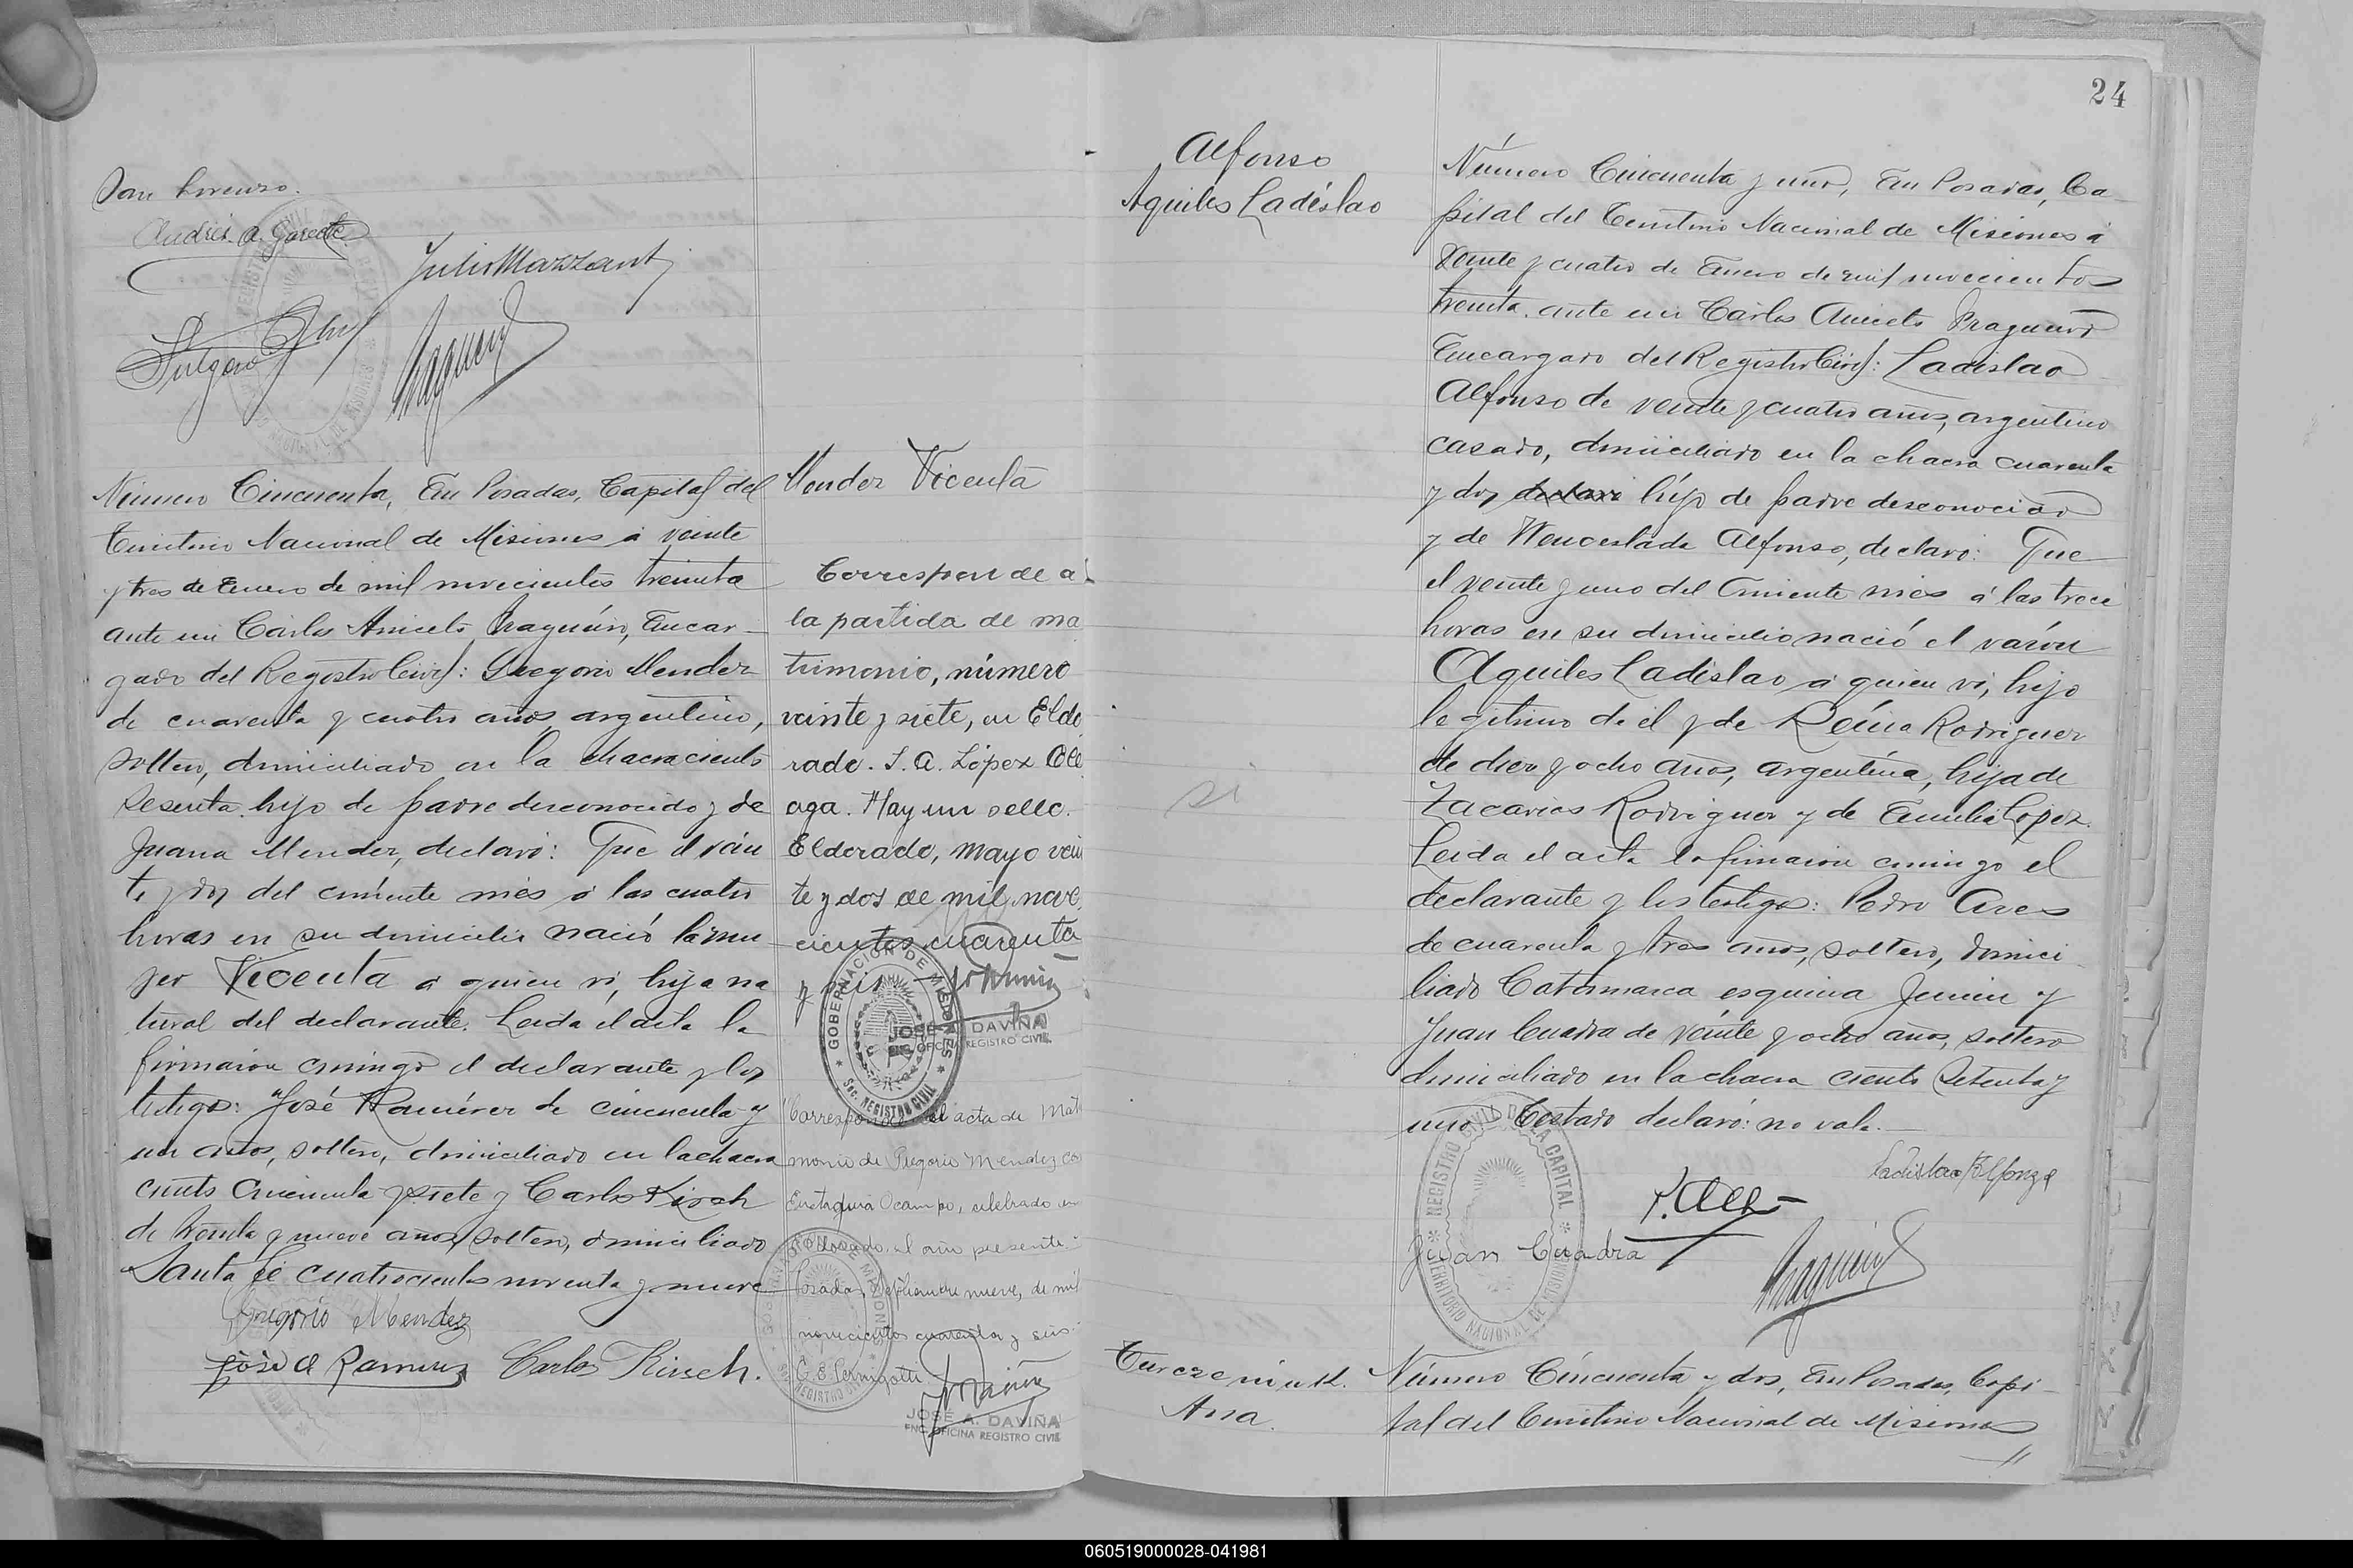 San Lorenzo.
Andrés A. Garcete
Julio Mazzanti
Número Cincuenta, En Posadas, Capital del
Territorio Nacional de Misiones á veinte
y tres de Enero de mil novecientos treinta
ante mi Carlos Aniceto Fraguío, Encar-
gado del Registro Civil: Gregorio Mendez
de cuarenta y cuatro años, argentino,
soltero, domiciliado en la chacra ciento
sesenta hijo de padre desconocido y de
Juana Mendez, declaró: Que el vein
te y dos del corriente mes á las cuatro
horas en su domicilio nació la mu-
jer Vicenta á quien ví, hija na
tural del declarante. Leída el acta la
firmaron conmigo el declarante y los
testigos: José Ramírez de cincuenta y
un años, soltero, domiciliado en la chacra
ciento cincuenta y siete y Carlos Kirsch
de treinta y nueve años, soltero, domiciliado
Santa Fé cuatrocientos noventa y nueve
Gregorio Mendez
José A Ramirez Carlos Kirsch.
Mendez Vicenta
Corresponde a
la partida de ma
trimonio, número
veinte y siete, en Eldo
rado. J. A. López
aga. Hay un sello.
Eldorado, mayo vein
te y dos de mil nove
cientos cuarenta
y seis
GOBERNACIÓN DE MISIONES
SOC. REGISTRO CIVIL
JOSÉ A. DAVIÑA
ENC. OFICINA REGISTRO CIVIL
Corresponde al acta de Matri
monio de Gregorio Mendez con
Eustaquia Ocampo, celebrado en
Eldorado, el año presente.
Posadas, Septiembre nueve, de mil
novecientos cuarenta y seis.
JOSÉ A. DAVIÑA
ENC. OFICINA REGISTRO CIVIL
24
Alfonso
Aquiles Ladislao
si
Número Cincuenta y uno, En Posadas, Ca-
pital del Territorio Nacional de Misiones á
veinte y cuatro de Enero de mil novecientos
treinta, ante mi Carlos Aniceto Fraguío
Encargado del Registro Civil: Ladislao
Alfonso de veinte y cuatro años, argentino
casado, domiciliado en la chacra cuarenta
y dos declaró hijo de padre desconocido
y de Wenceslada Alfonso, declaró: Que
el veinte y uno del corriente mes á las trece
horas en su domicilio nació el varón
Aquiles Ladislao á quien ví, hijo
legítimo de él y de Reina Rodriguez
de diez y ocho años, argentina, hija de
Zacarias Rodriguez y de Emilia Lopez.
Leida el acta la firmaron conmigo el
declarante y los testigos: Pedro Ares
de cuarenta y tres años, soltero, domici
liado Catamarca esquina Junin y
Juan Cuadra de veinte y ocho años, soltero
domiciliado en la chacra ciento setenta y
uno Testado declaró: no vale.-
REGISTRO CIVIL DE LA CAPITAL
TERRITORIO NACIONAL DE MISIONES
Ladislao Alfonzo
Juan Cuadra
Ana.
Número Cincuenta y dos, En Posadas, Capi-
tal del Territorio Nacional de Misiones
060519000028-041981